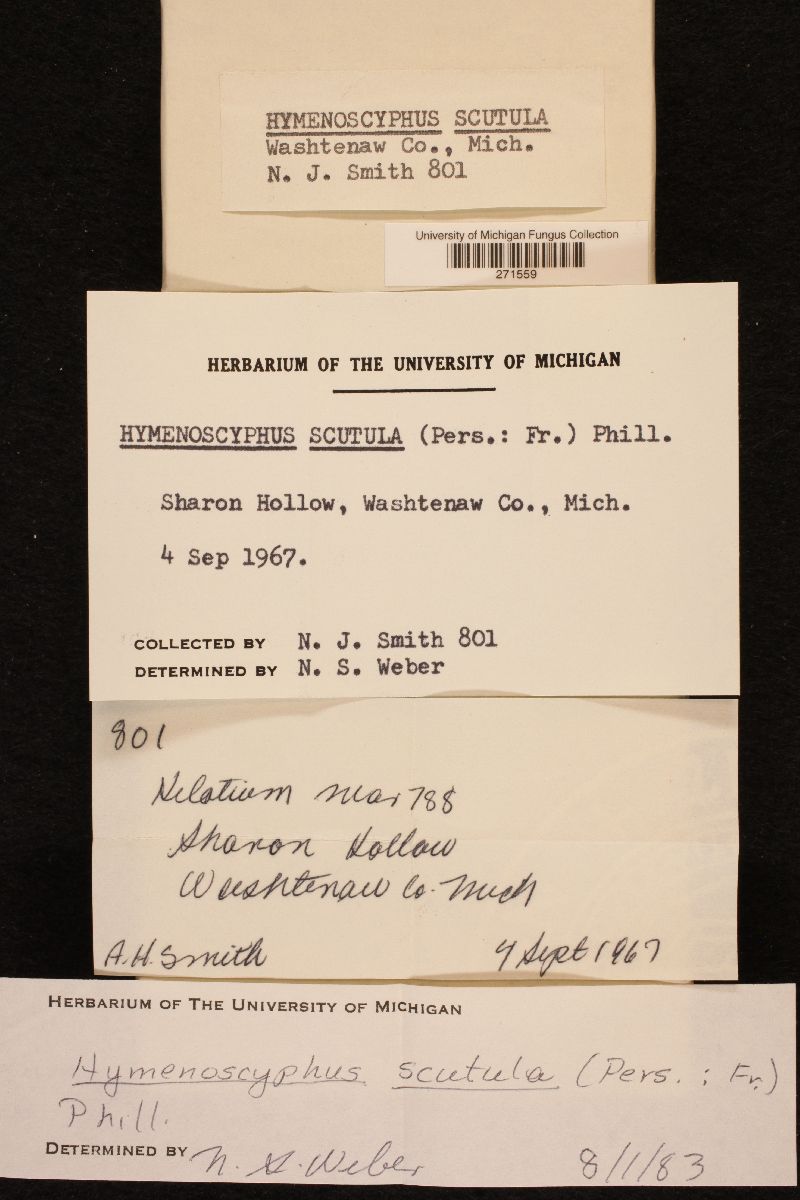 HYMENOSCYPHUS SCUTULA
Washtenaw Co., Mich.
N. J. Smith 801
University of Michigan Fungus Collection
271559
HERBARIUM OF THE UNIVERSITY OF MICHIGAN
HYMENOSCYPHUS SCUTULA (Pers.: Fr.) Phill.
Sharon Hollow, Washtenaw Co., Mich.
4 Sep 1967.
COLLECTED BY N. J. Smith 801
DETERMINED BY N. S. Weber
801
Helotium near 788
Sharon Hollow
Washtenaw Co. Mich
A.H. Smith 4 Sept 1967
HERBARIUM OF THE UNIVERSITY OF MICHIGAN
Hymenoscyphus scutula (Pers. : Fr.)
Phill.
DETERMINED BY N. S. Weber 8/1/83